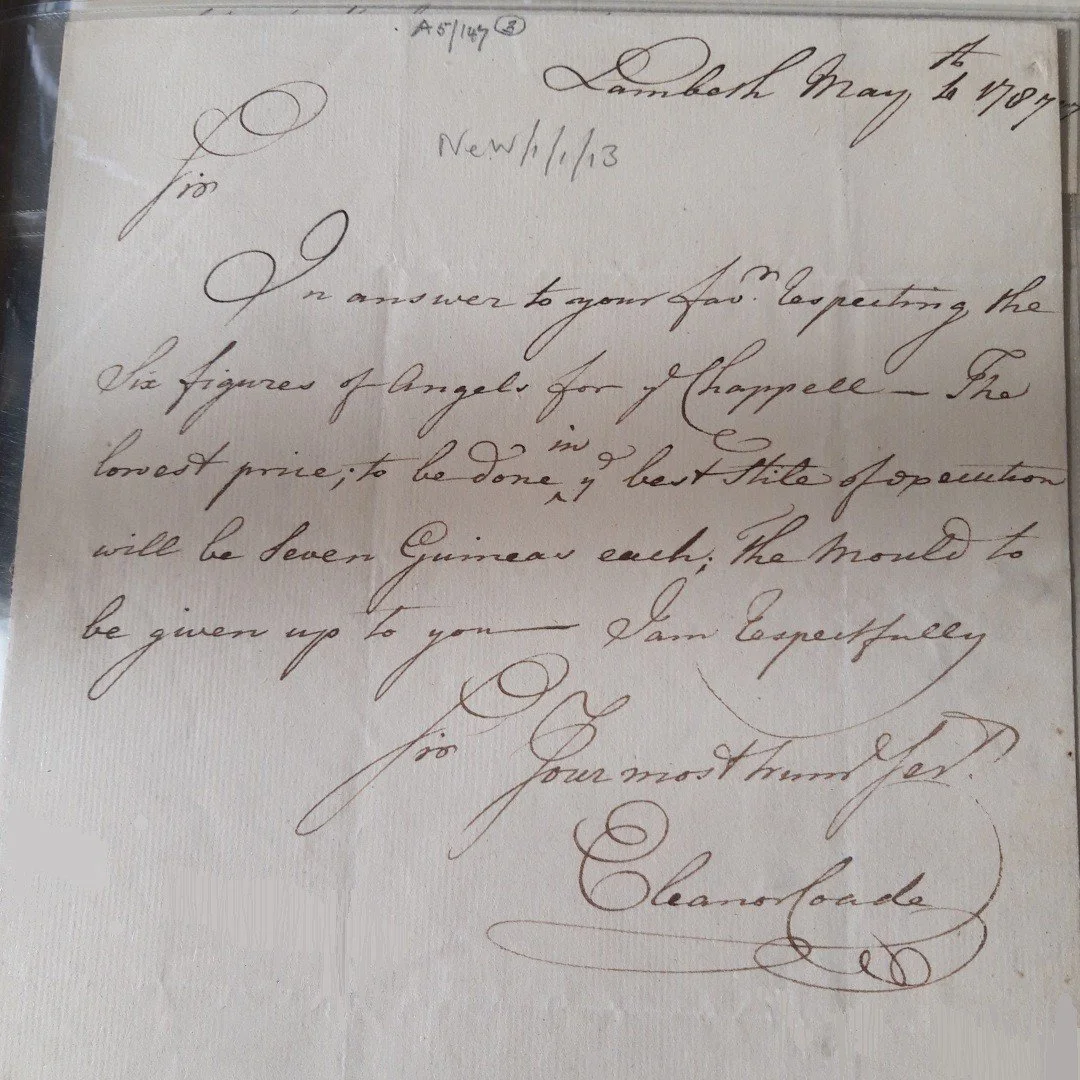 A5/147 (3)
Lambeth May 4th 1787
NeW/1/1/13
Sir
In answer to your favr. Respecting the
Six figures of Angels for ye Chappell — The
lowest price; to be done in ye best Stile of execution
will be Seven Guineas each; The Mould to
be given up to you — I am Respectfully
Sir Your most humle Servt.
Eleanor Coade